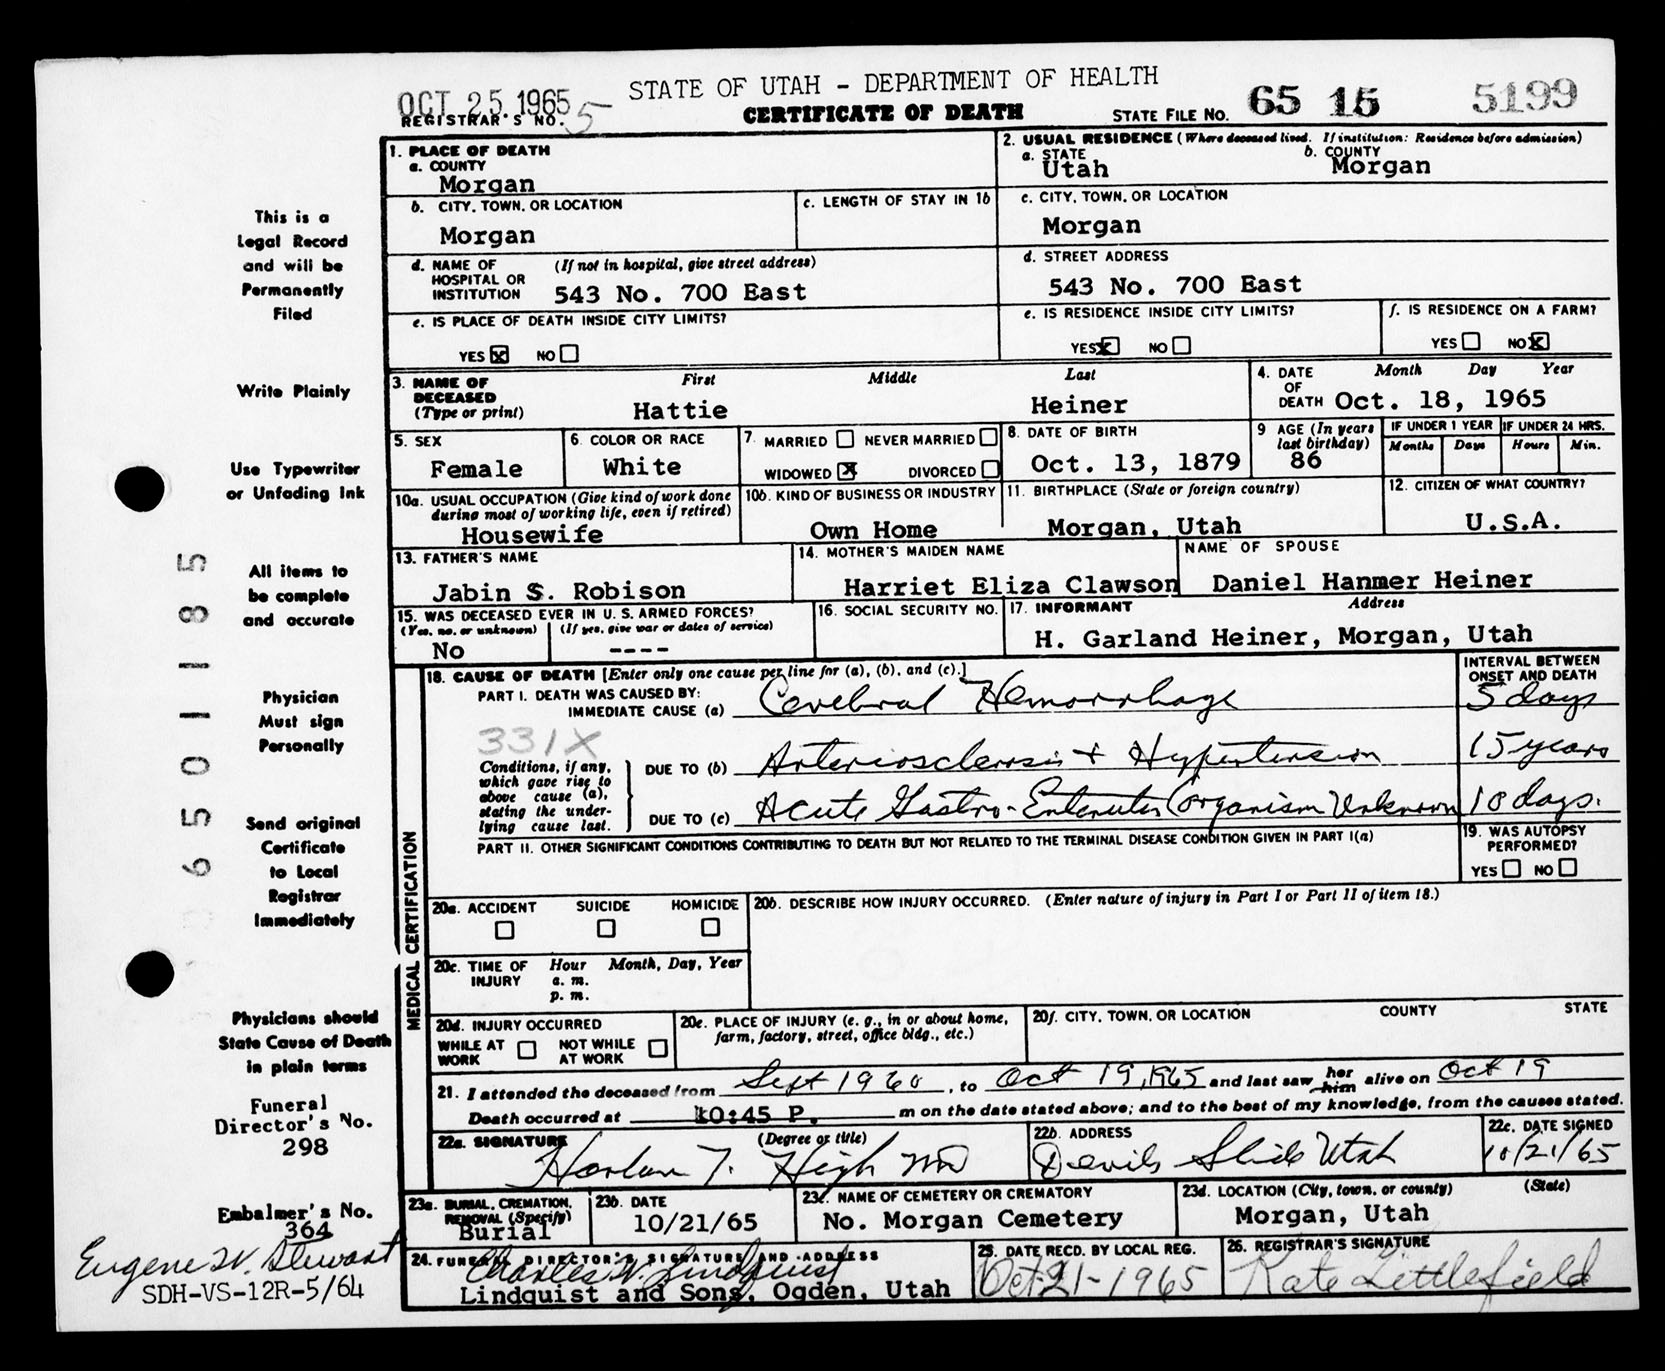 STATE OF UTAH - DEPARTMENT OF HEALTH
OCT 25 1965
REGISTRAR'S NO. 5
CERTIFICATE OF DEATH
STATE FILE NO. 65 15 5199
This is a Legal Record and will be Permanently Filed
Write Plainly
Use Typewriter or Unfading Ink
All items to be complete and accurate
Physician Must sign Personally
Send original Certificate to Local Registrar Immediately
Physicians should State Cause of Death in plain terms
Funeral Director's No. 298
Embalmer's No. 364
Eugene W. Stewart
SDH-VS-12R-5/64
65011815
1. PLACE OF DEATH
a. COUNTY
Morgan
2. USUAL RESIDENCE (Where deceased lived. If institution: Residence before admission)
a. STATE
Utah
b. COUNTY
Morgan
b. CITY, TOWN, OR LOCATION
Morgan
c. LENGTH OF STAY IN 1b
c. CITY, TOWN, OR LOCATION
Morgan
d. NAME OF HOSPITAL OR INSTITUTION (If not in hospital, give street address)
543 No. 700 East
d. STREET ADDRESS
543 No. 700 East
e. IS PLACE OF DEATH INSIDE CITY LIMITS?
YES X NO
e. IS RESIDENCE INSIDE CITY LIMITS?
YES X NO
f. IS RESIDENCE ON A FARM?
YES NO X
3. NAME OF DECEASED (Type or print)
First Middle Last
Hattie Heiner
4. DATE OF DEATH Month Day Year
Oct. 18, 1965
5. SEX
Female
6. COLOR OR RACE
White
7. MARRIED NEVER MARRIED
WIDOWED X DIVORCED
8. DATE OF BIRTH
Oct. 13, 1879
9 AGE (In years last birthday)
86
IF UNDER 1 YEAR
Months Days
IF UNDER 24 HRS.
Hours Min.
10a. USUAL OCCUPATION (Give kind of work done during most of working life, even if retired)
Housewife
10b. KIND OF BUSINESS OR INDUSTRY
Own Home
11. BIRTHPLACE (State or foreign country)
Morgan, Utah
12. CITIZEN OF WHAT COUNTRY?
U.S.A.
13. FATHER'S NAME
Jabin S. Robison
14. MOTHER'S MAIDEN NAME
Harriet Eliza Clawson
NAME OF SPOUSE
Daniel Hanmer Heiner
15. WAS DECEASED EVER IN U. S. ARMED FORCES?
(Yes, no, or unknown) (If yes, give war or dates of service)
No ----
16. SOCIAL SECURITY NO.
17. INFORMANT Address
H. Garland Heiner, Morgan, Utah
MEDICAL CERTIFICATION
18. CAUSE OF DEATH [Enter only one cause per line for (a), (b), and (c).]
INTERVAL BETWEEN ONSET AND DEATH
PART I. DEATH WAS CAUSED BY:
IMMEDIATE CAUSE (a) Cerebral Hemorrhage 5 days
331X
Conditions, if any, which gave rise to above cause (a), stating the underlying cause last.
DUE TO (b) Arteriosclerosis + Hypertension 15 years
DUE TO (c) Acute Gastro-Enteritis (organism Unknown 10 days.
PART II. OTHER SIGNIFICANT CONDITIONS CONTRIBUTING TO DEATH BUT NOT RELATED TO THE TERMINAL DISEASE CONDITION GIVEN IN PART I(a)
19. WAS AUTOPSY PERFORMED?
YES NO
20a. ACCIDENT SUICIDE HOMICIDE
20b. DESCRIBE HOW INJURY OCCURRED. (Enter nature of injury in Part I or Part II of item 18.)
20c. TIME OF INJURY Hour Month, Day, Year
a. m.
p. m.
20d. INJURY OCCURRED
WHILE AT WORK NOT WHILE AT WORK
20e. PLACE OF INJURY (e. g., in or about home, farm, factory, street, office bldg., etc.)
20f. CITY, TOWN, OR LOCATION COUNTY STATE
21. I attended the deceased from Sept 1960, to Oct 19, 1965 and last saw her him alive on Oct 19
Death occurred at 10:45 P. m on the date stated above; and to the best of my knowledge, from the causes stated.
22a. SIGNATURE (Degree or title)
Harlan T. High MD
22b. ADDRESS
Devils Slide Utah
22c. DATE SIGNED
10/21/65
23a. BURIAL, CREMATION, REMOVAL (Specify)
Burial
23b. DATE
10/21/65
23c. NAME OF CEMETERY OR CREMATORY
No. Morgan Cemetery
23d. LOCATION (City, town, or county) (State)
Morgan, Utah
24. FUNERAL DIRECTOR'S SIGNATURE AND ADDRESS
Charles W. Lindquist
Lindquist and Sons, Ogden, Utah
25. DATE RECD. BY LOCAL REG.
Oct-21-1965
26. REGISTRAR'S SIGNATURE
Kate Littlefield